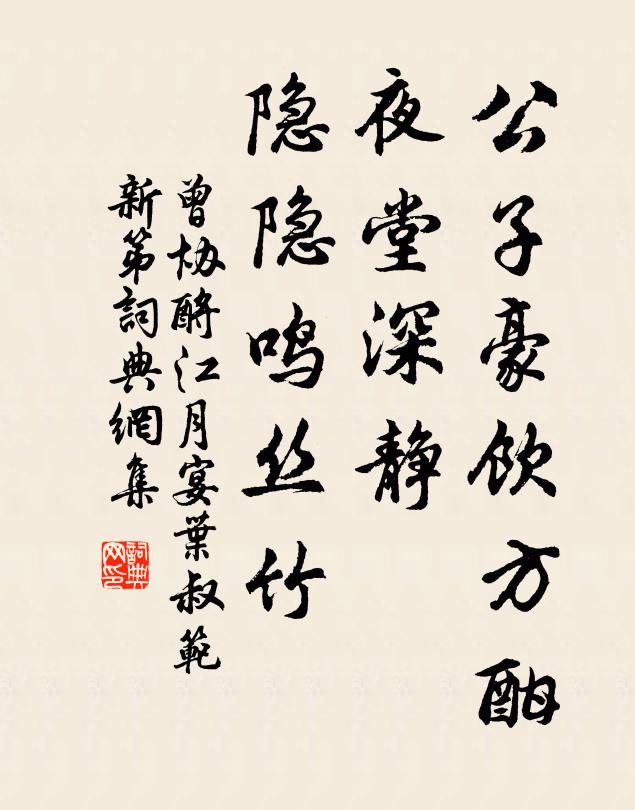 公子豪饮方酣
夜堂深静
隐隐鸣丝竹
曾协酹江月宴葉叔範
新第詞典網集
詞典網印